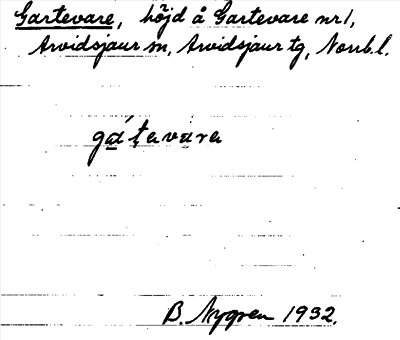 Gartevare, höjd å Gartevare nr 1,
Arvidsjaur sn, Arvidsjaur tg, Norrb.l.
gátavara
B. Nygren 1932.